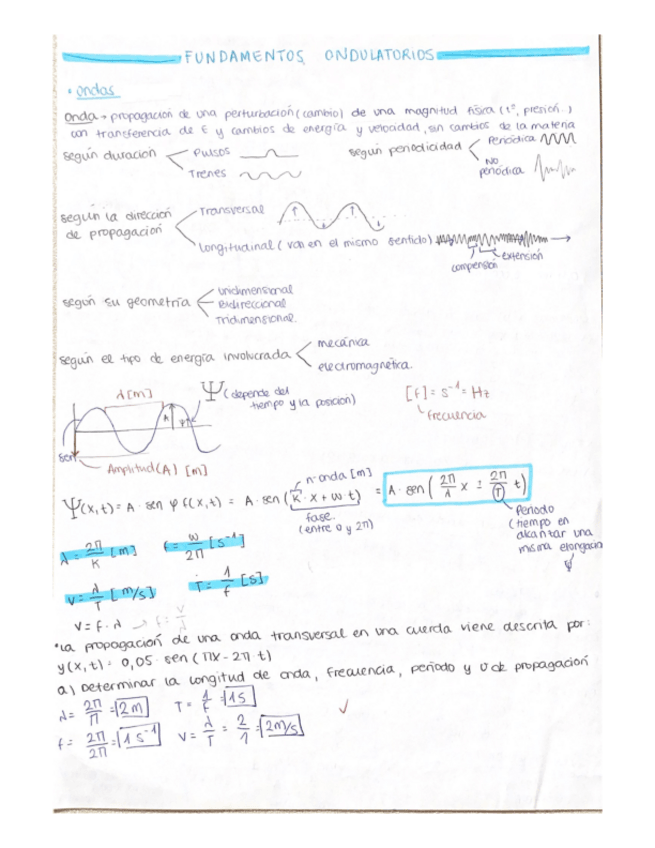 FUNDAMENTOS ONDULATORIOS
• ondas
Onda → propagación de una perturbación (cambio) de una magnitud física (tº, presión..)
con transferencia de E y cambios de energía y velocidad, sin cambios de la materia
según duración
Pulsos
Trenes
según periodicidad
Periódica
NO periódica
según la dirección de propagación
Transversal
Longitudinal (van en el mismo sentido)
compresión
extensión
según su geometría
unidimensional
Bidireccional
Tridimensional.
según el tipo de energía involucrada
mecánica
electromagnética.
λ [m]
Ψ (depende del
tiempo y la posición)
[f] = s⁻¹ = Hz
frecuencia
A
sen
Amplitud (A) [m]
n·onda [m]
Ψ(x,t) = A · sen φ f(x,t) = A · sen (K · x + w t) = A · sen (2π/λ x ± 2π/T t)
fase.
(entre 0 y 2π)
Periodo
(tiempo en
alcanzar una
misma elongación
λ = 2π/K [m]
f = w/2π [s⁻¹]
v = λ/T [m/s]
T = 1/f [s]
v = f · λ → f = v/λ
• La propagación de una onda transversal en una cuerda viene descrita por:
y(x,t) = 0,05 · sen (πx - 2π t)
a) Determinar la longitud de onda, frecuencia, periodo y v de propagación
λ = 2π/π = 2m
T = 1/f = 1s
f = 2π/2π = 1 s⁻¹
v = λ/T = 2/1 = 2m/s